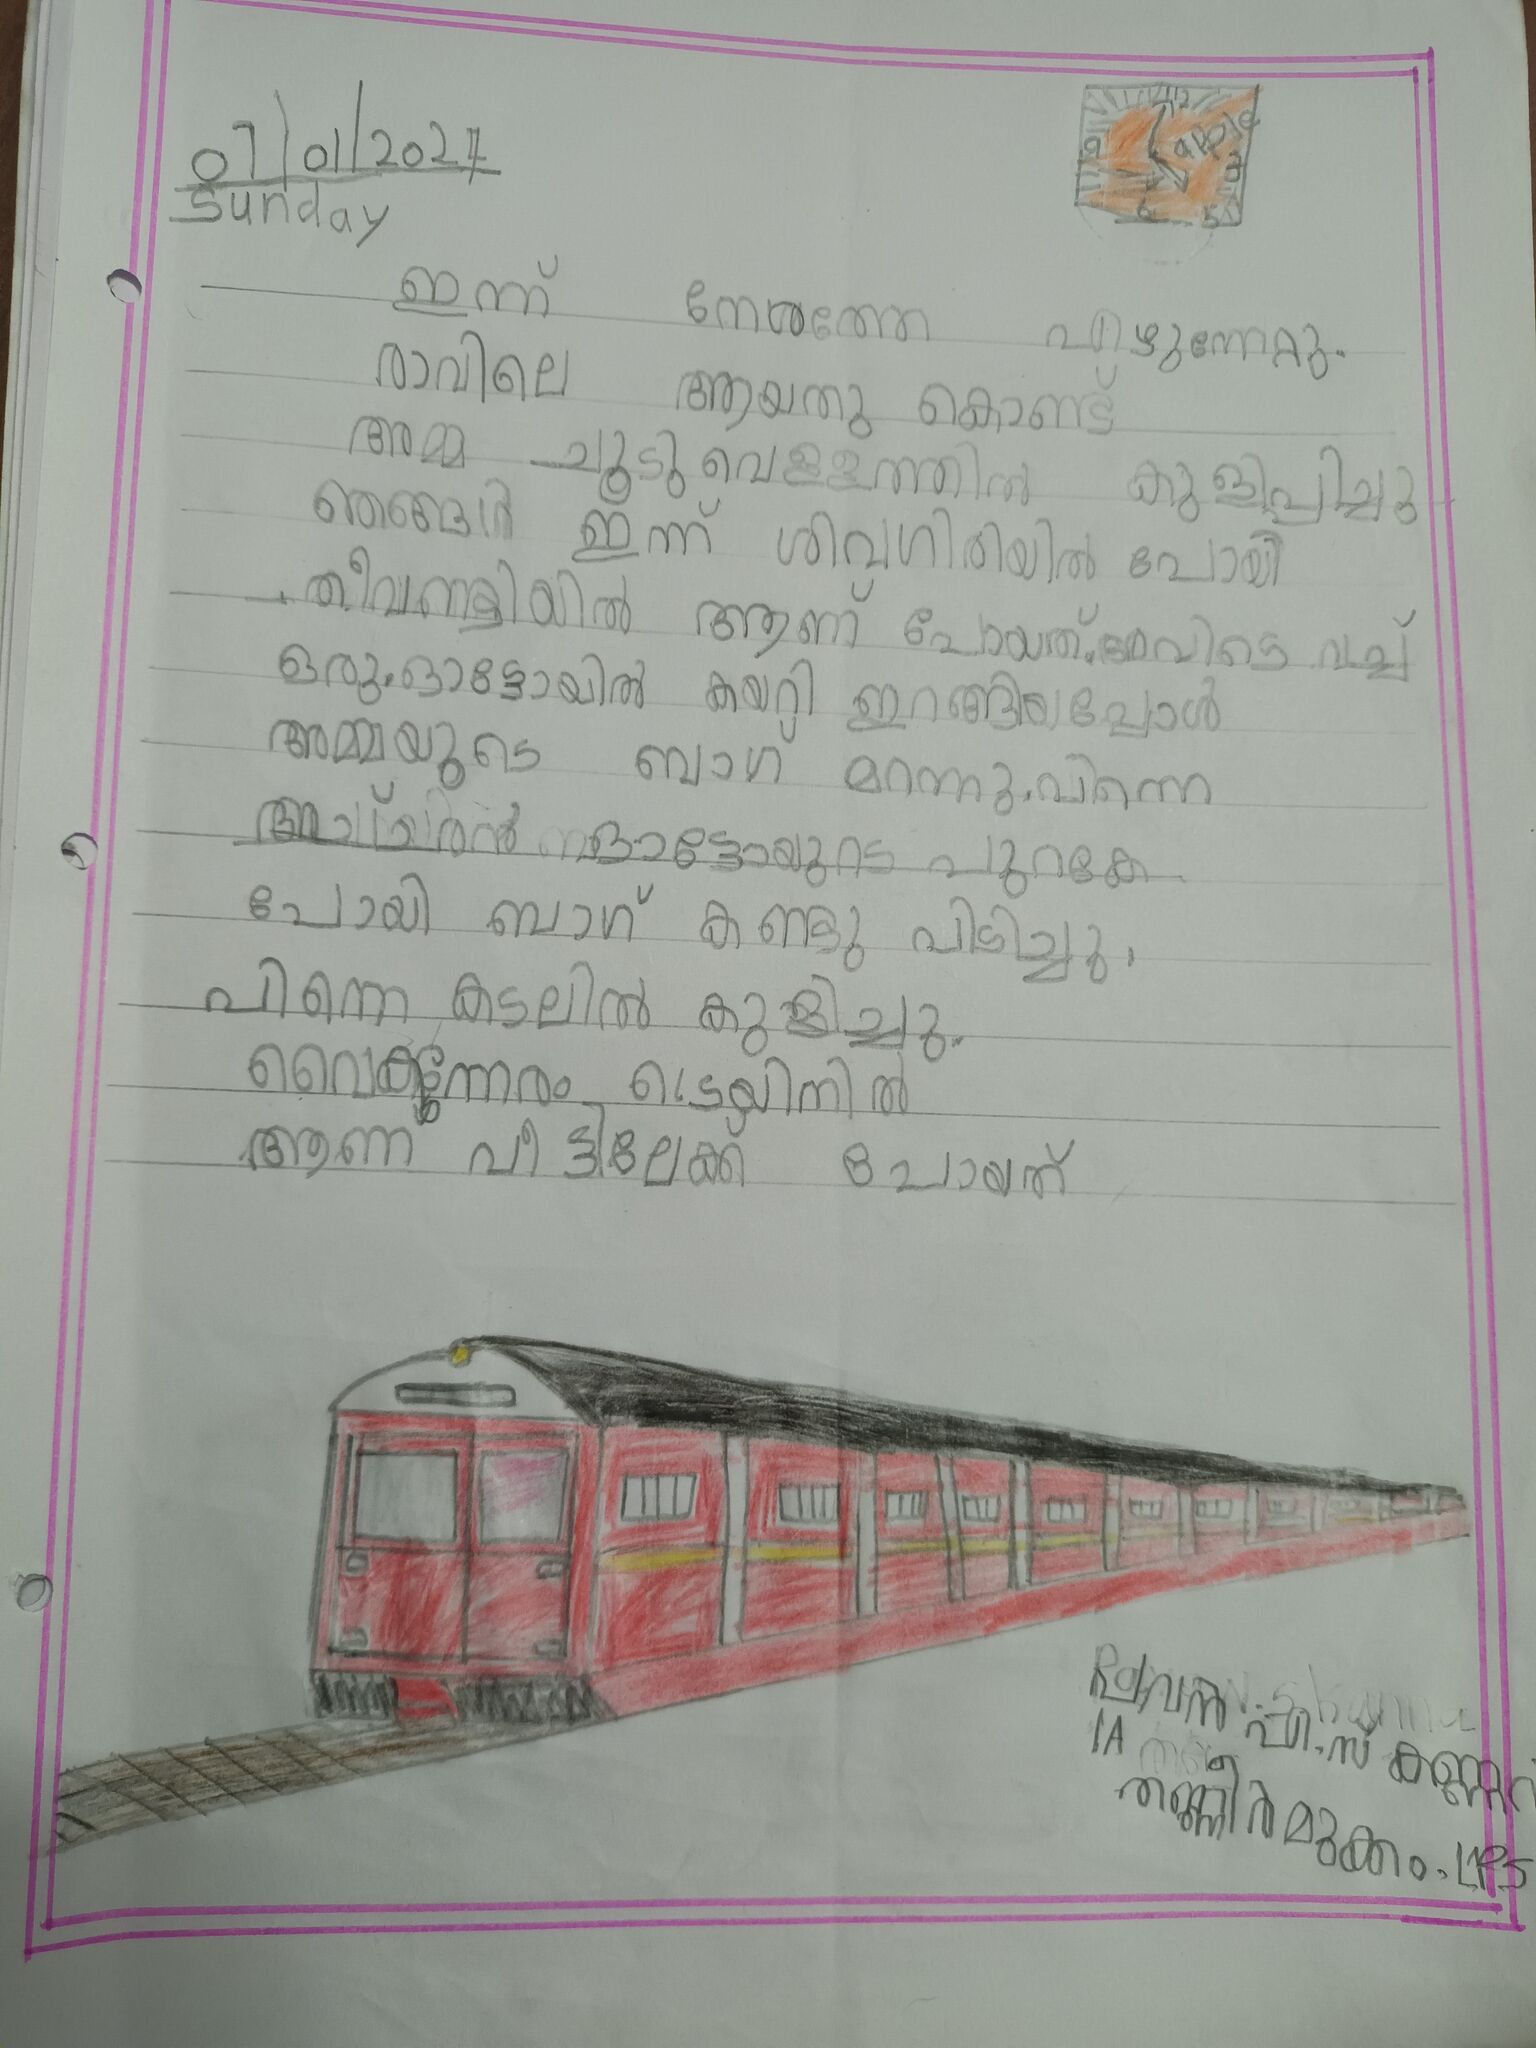 07/01/2024
Sunday
apple
ഇന്ന് നേരത്തേ എഴുന്നേറ്റു.
രാവിലെ ആയതു കൊണ്ട്
അമ്മ ചൂടുവെള്ളത്തിൽ കുളിപ്പിച്ചു
ഞങ്ങൾ ഇന്ന് ശിവഗിരിയിൽ പോയി
തീവണ്ടിയിൽ ആണ് പോയത്. അവിടെ വച്ച്
ഒരു ഓട്ടോയിൽ കയറ്റി ഇറങ്ങിയപ്പോൾ
അമ്മയുടെ ബാഗ് മറന്നു. പിന്നെ
ഓട്ടോയുടെ പുറകേ
പോയി ബാഗ് കണ്ടു പിടിച്ചു.
പിന്നെ കടലിൽ കുളിച്ചു.
വൈകുന്നേരം ട്രെയിനിൽ
ആണ് വീട്ടിലേക്ക് പോയത്
പി.സ്
1A
തണ്ണീർമുക്കം. LPS